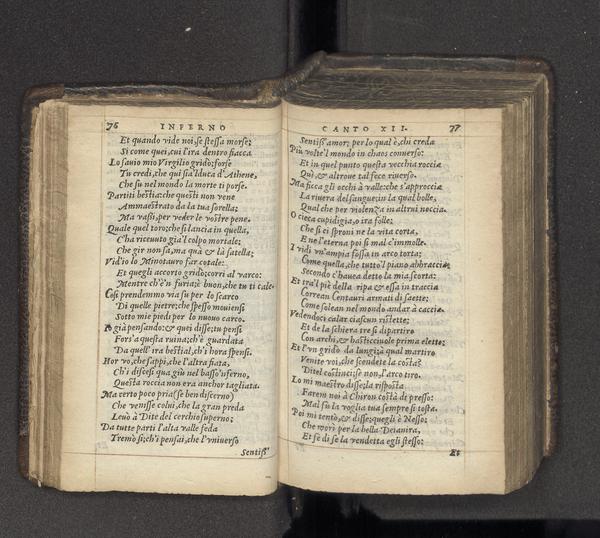 76 INFERNO
Et quando vide noi, se stessa morse;
Si come quei, cui l'ira dentro fiacca
Lo savio mio Virgilio gridò: forse
Tu credi, che qui sia'l duca d'Athene,
Che su nel mondo la morte ti porse.
Partiti bestia: che questi non vene
Ammaestrato da la tua sorella;
Ma vassi, per veder le vostre pene.
Quale quel toro; che si lancia in quella,
C'ha ricevuto gia'l colpo mortale;
Che gir non sa, ma quà & là satella;
Vid'io lo Minotauro far cotale:
Et quegli accorto gridò; corri al varco:
Mentre ch'è'n furia; è buon, che tu ti cale.
Cosi prendemmo via su per lo scarco
Di quelle pietre; che spesso moviensi
Sotto mie piedi per lo nuovo carco.
Io già pensando: & quei disse; tu pensi
Fors'a questa ruina; ch'è guardata
Da quell'ira bestial, ch'i hora spensi.
Hor vo, che sappi, che l'altra fiata,
Ch'i discesi qua giù nel basso'nferno,
Questa roccia non era anchor tagliata.
Ma certo poco pria (se ben discerno)
Che venisse colui, che la gran preda
Levò à Dite del cerchio superno;
Da tutte parti l'alta valle feda
Tremò sì; ch'i pensai, che l'universo
Sentiss'
CANTO XII. 77
Sentiss' amor; per lo qual è, chi creda
Più volte'l mondo in chaos converso:
Et in quel punto questa vecchia roccia
Quì, & altrove tal fece riverso.
Ma ficca gli occhi à valle: che s'approccia
La riviera del sangue; in la qual bolle,
Qual che per violenza in altrui noccia.
O cieca cupidigia, o ira folle;
Che si ci sproni ne la vita corta,
E ne l'eterna poi si mal c'immolle.
I vidi un'ampia fossa in arco torta;
Come quella, che tutto'l piano abbraccia;
Secondo c'havea detto la mia scorta:
Et tra'l piè della ripa & essa in traccia
Correan Centauri armati di saette;
Come solean nel mondo andar à caccia.
Vedendoci calar ciascun ristette;
Et de la schiera tre si dipartiro
Con archi, & hasticciuole prima elette:
Et l'un gridò da lungi; a qual martiro
Venite voi, che scendete la costa?
Ditel costinci; se non, l'arco tiro.
Lo mi maestro disse; la risposta
Farem noi à Chiron costà di presso:
Mal fu la voglia tua sempre si tosta.
Poi mi tentò, & disse; quegli è Nesso;
Che morì per la bella Deianira,
Et fè di se la vendetta egli stesso:
Et